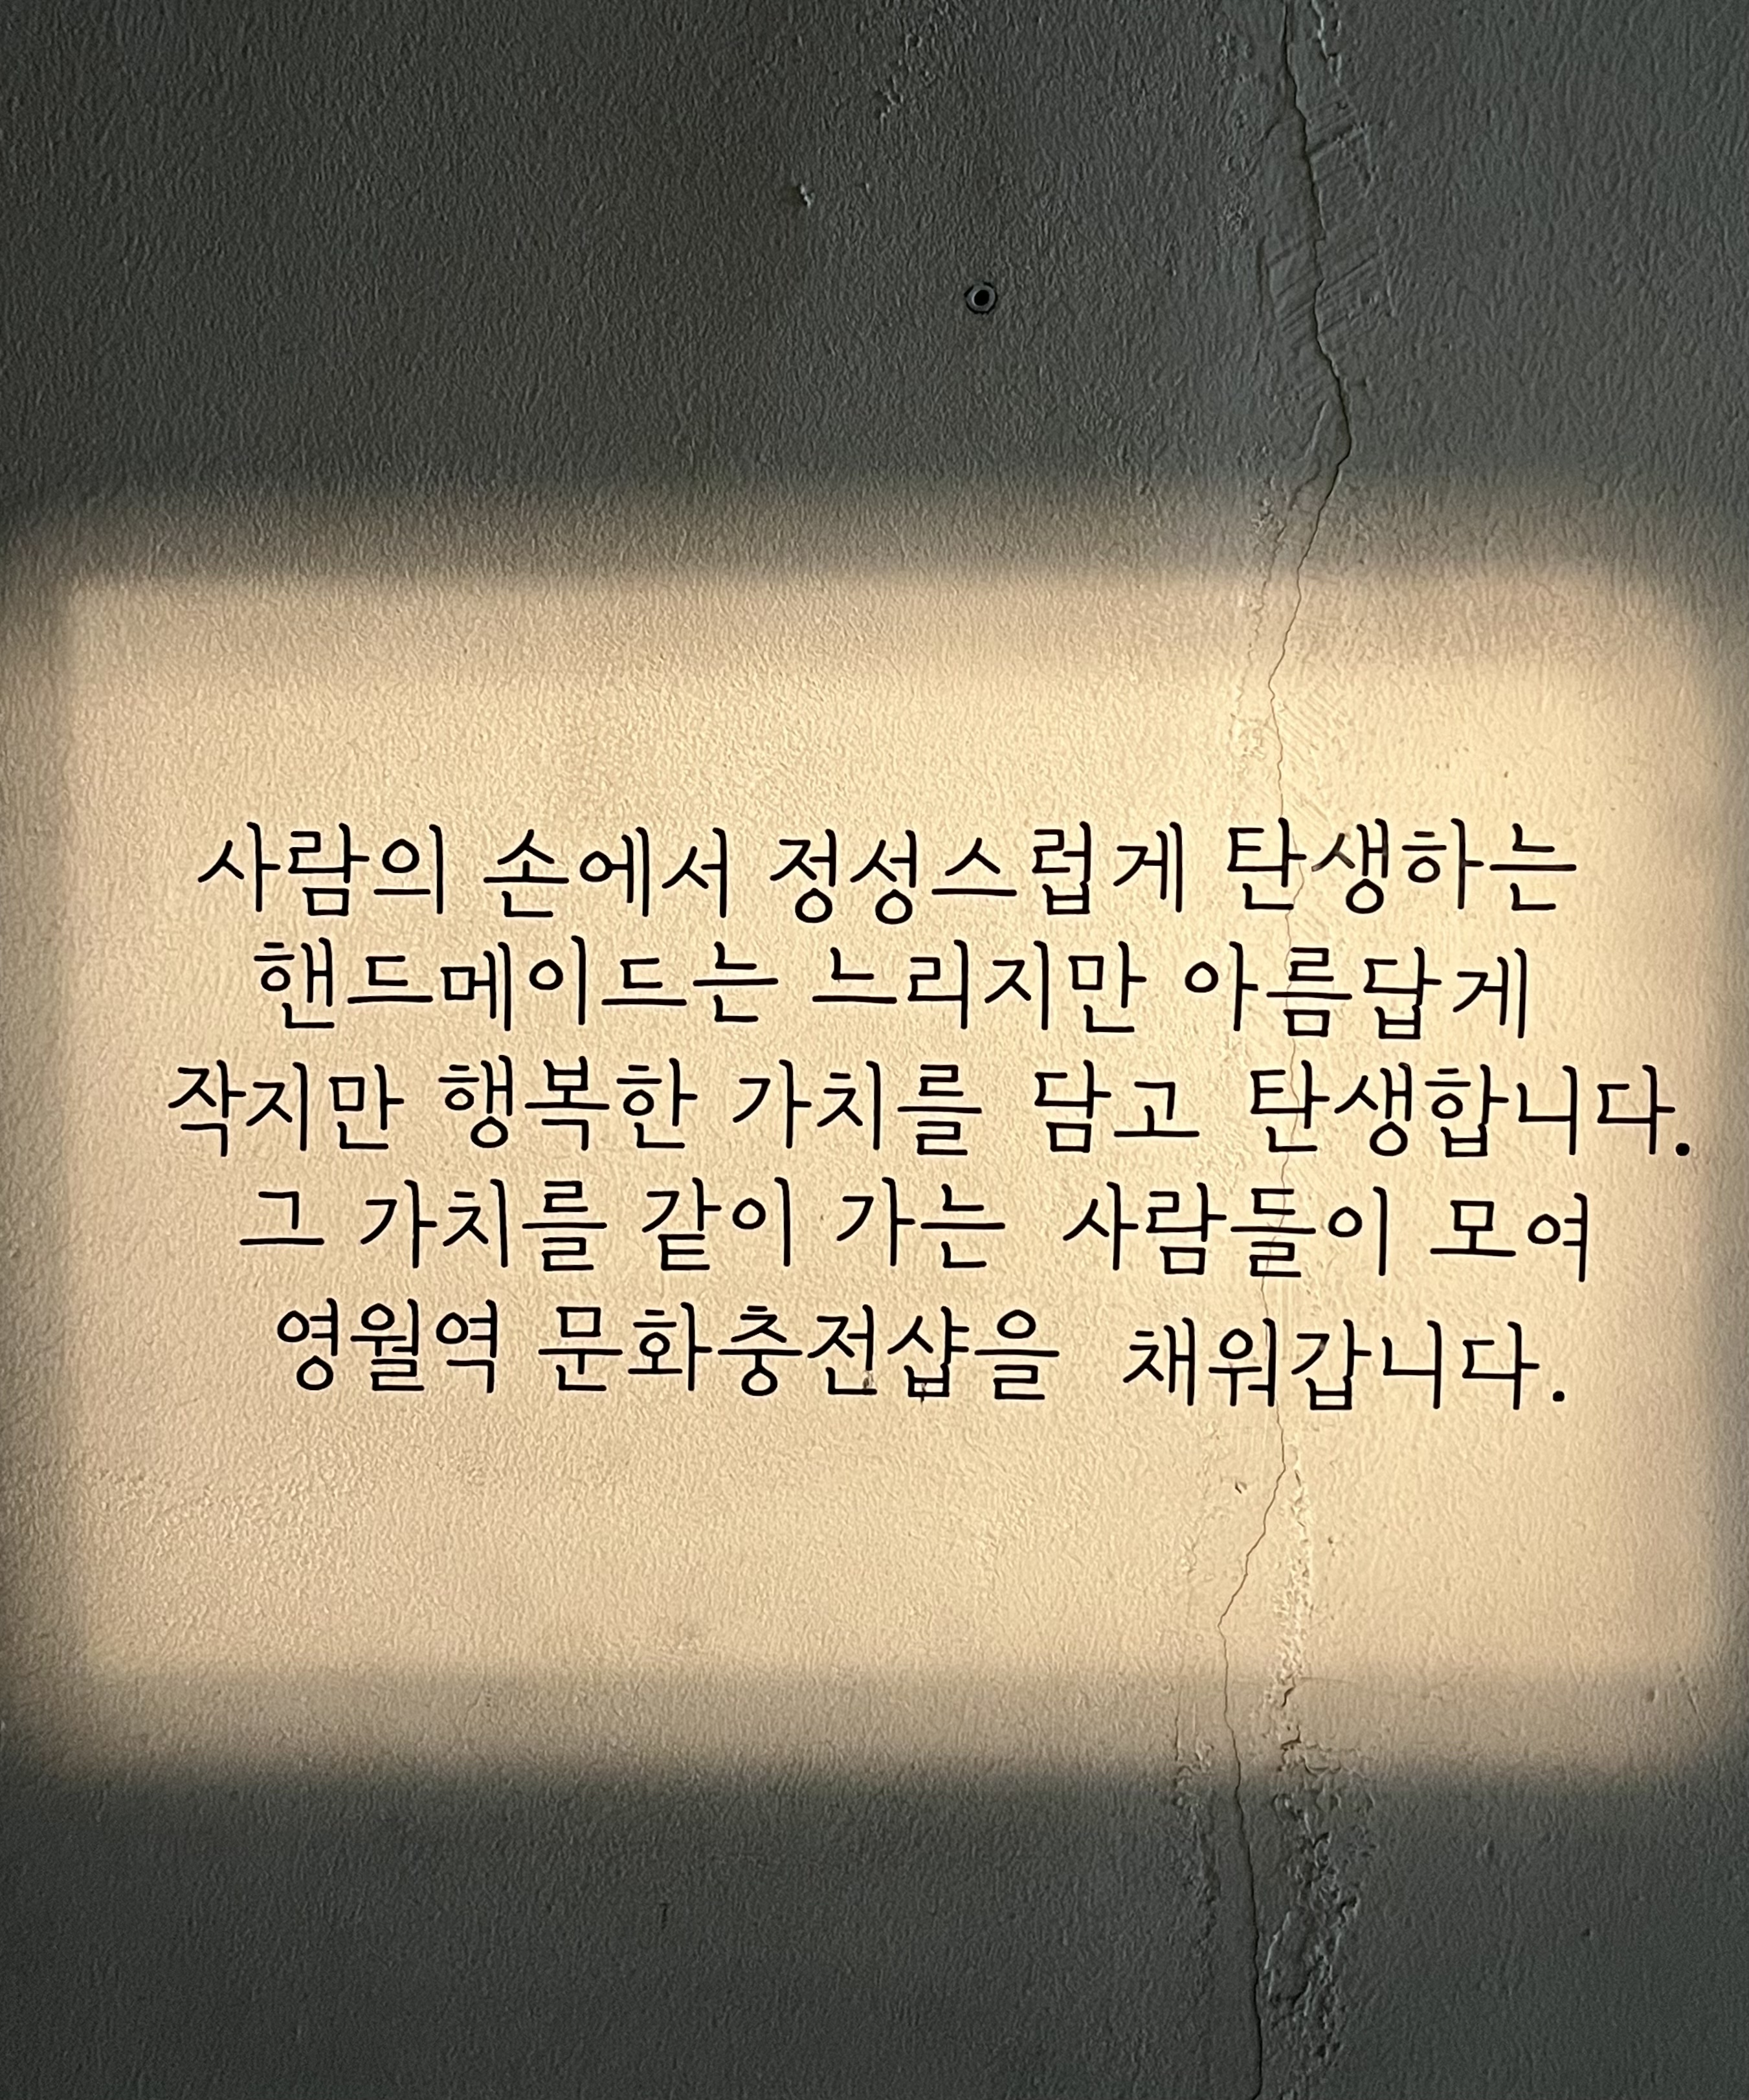 사람의 손에서 정성스럽게 탄생하는
핸드메이드는 느리지만 아름답게
작지만 행복한 가치를 담고 탄생합니다.
그 가치를 같이 가는 사람들이 모여
영월역 문화충전샵을 채워갑니다.